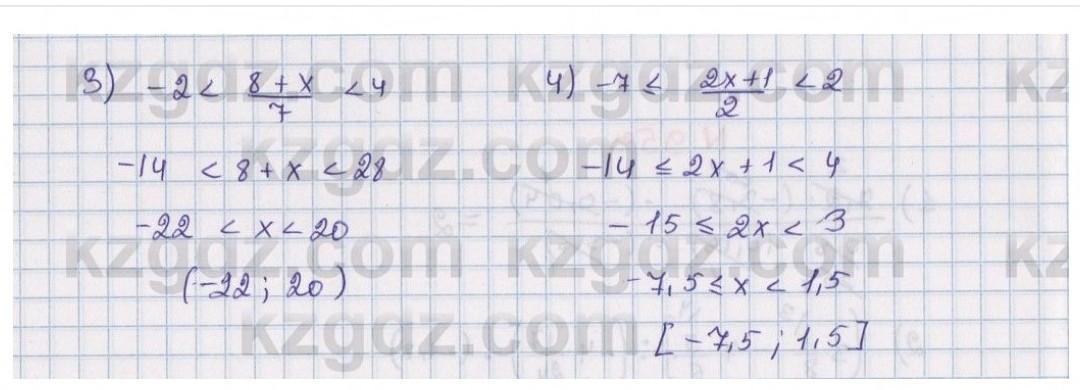 3) -2 < (8+x)/7 < 4
-14 < 8+x < 28
-22 < x < 20
(-22; 20)
4) -7 ≤ (2x+1)/2 < 2
-14 ≤ 2x+1 < 4
-15 ≤ 2x < 3
-7,5 ≤ x < 1,5
[-7,5; 1,5]
kzgdz.com kzgdz.com kz
kzgdz.com
kzgdz.com kzgdz.com kz
kzgdz.com